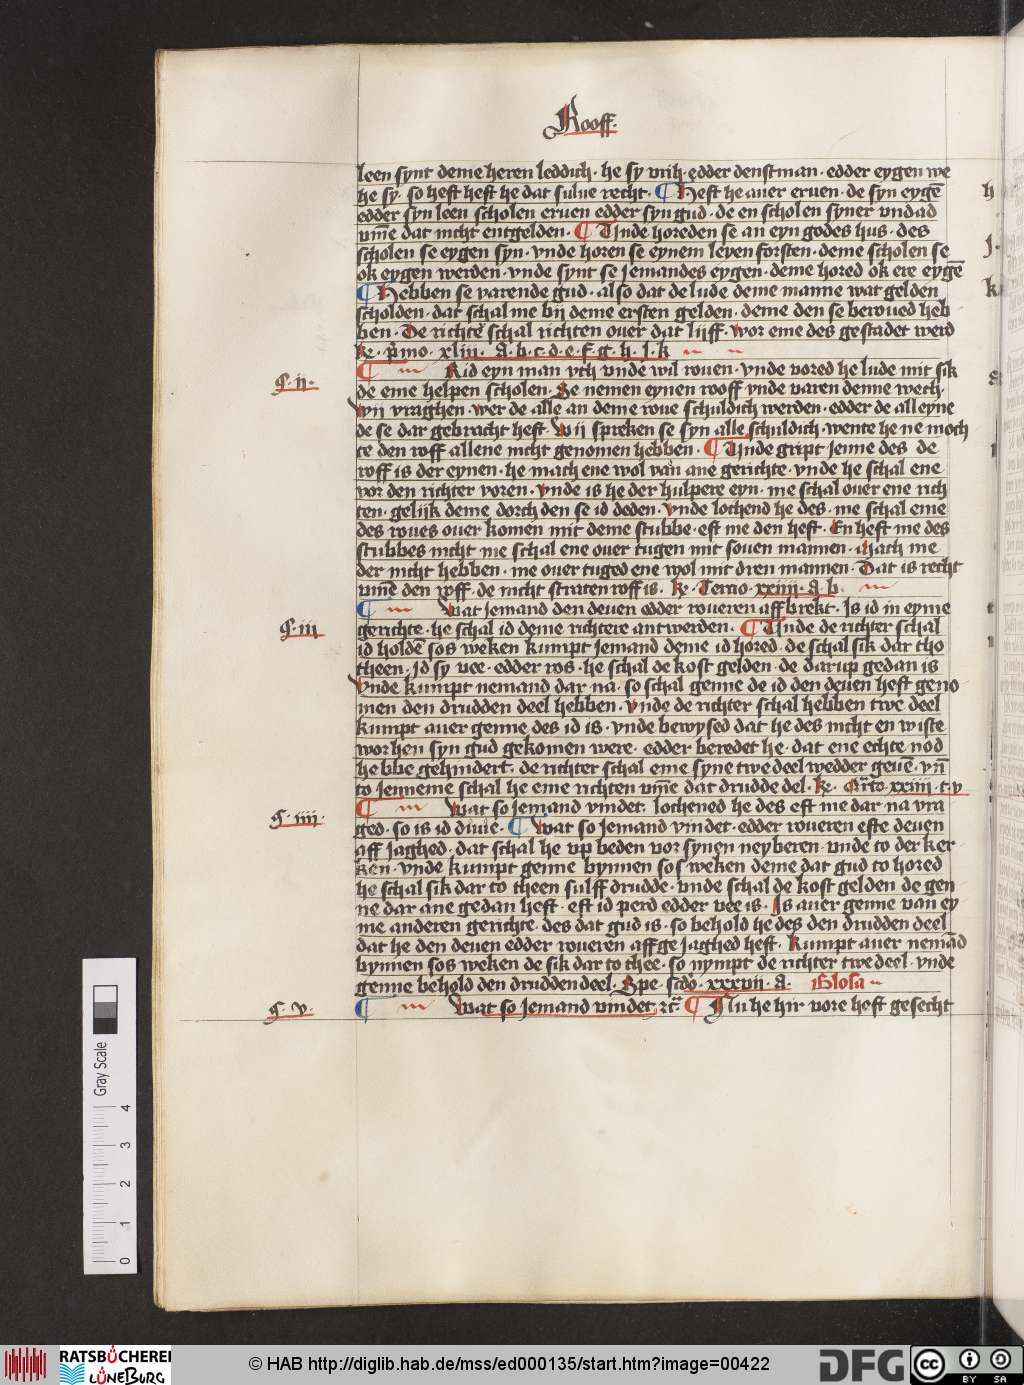 Rooff.
leen synt deme heren leddich · he sy vrih · edder denstman · edder eygen we
he sy · so heft heft he dat sulue recht · ¶ Heft he auer eruen · de syn eygē
edder syn leen scholen eruen edder syn gud · de en scholen syner vndad
vm̄e dat nicht entgelden · ¶ Vnde horeden se an eyn godes hus · des
scholen se eygen syn · vnde horen se eynem leyen forsten · deme scholen se
ok eygen werden · vnde synt se jemandes eygen · deme hored ok ere eygē
¶ Hebben se varende gud · also dat de lude deme manne wat gelden
scholden · dat schal me bij deme ersten gelden · deme den se beroued heb
ben · De richter schal richten ouer dat lijff · wor eme des gestadet werd
Re · p̄mo · xliii · A · b · c · d · e · f · g · h · J · k
§ · ii · ¶ Rid eyn man vth vnde wil rouen · vnde vored he lude mit sik
de eme helpen scholen · Se nemen eynen rooff vnde varen denne wech ·
Wij vraghen · wer de alle an deme roue schuldich werden · edder de alleyne
de se dar gebracht heft · Wij spreken se syn alle schuldich · wente he ne moch
te den roff allene nicht genomen hebben · ¶ Vnde gript jenne des de
roff is der eynen · he mach ene wol van ane gerichte · vnde he schal ene
vor den richter voren · Vnde is he der hulpere eyn · me schal ouer ene rich
ten · gelijk deme dorch den se id deden · Vnde lochend he des · me schal eme
des roues ouer komen mit deme stubbe · eft me den heft · En heft me des
stubbes nicht me schal ene ouer tugen mit souen mannen · Mach me
der nicht hebben · me ouer tuged ene wol mit dren mannen · Dat is recht
vm̄e den roff · de nicht straten roff is · Re · Tercio · xxiiii · A · b ·
§ · iii ¶ Wat jemand den deuen edder roueren aff brekt · Is id in eyme
gerichte · he schal id deme richtere antwerden · ¶ Vnde de richter schal
id holdē sos weken kumpt jemand deme id hored · de schal sik dar tho
theen · id sy vee · edder ros · he schal de kost gelden · de darup gedan is
Vnde kumpt nemand dar na · so schal genne de id den deuen heft geno
men den drudden deel hebben · Vnde de richter schal hebben twe deel
kumpt auer genne des id is · vnde bewysed dat he des nicht en wiste
wor hen syn gud gekomen were · edder beredet he · dat ene echte nod
hebbe gehindert · de richter schal eme syne twe deel wedder geuē · vn̄
to jenneme schal he eme richten vm̄e dat drudde del · Re · Qr̄to · xxiiii · t · v
§ · iiii · ¶ Wat so jemand vindet · lochened he des eft me dar na vra
ged · so is id duue · ¶ Wat so jemand vindet · edder roueren efte deuen
aff jaghed · dat schal he vp beden vor synen neyberen · vnde to der ker
ken · vnde kumpt genne bynnen sos weken deme dat gud to hored
he schal sik dar to theen sulff drudde · vnde schal de kost gelden de gen
ne dar ane gedan heft · eft id perd edder vee is · Is auer genne van ey
me anderen gerichte · des dat gud is · so behold he des den drudden deel
dat he den deuen edder roueren aff ge jaghed heft · Kumpt auer nemād
bynnen sos weken de sik dar to thee · so nympt de richter twe deel · vnde
genne behold den drudden deel · Spe · scd̄o · xxxvii · A · Glosa
§ · v · ¶ Wat so jemand vindet · rc̄ · ¶ Nu he hir vore heft gesecht
Gray Scale
4
3
2
1
0
RATSBÜCHEREI
LÜNEBURG
© HAB http://diglib.hab.de/mss/ed000135/start.htm?image=00422
DFG
cc
BY SA